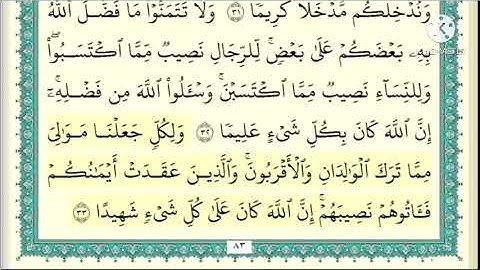 وَنُدْخِلْكُم مُّدْخَلًا كَرِيمًا ٣١ وَلَا تَتَمَنَّوْا مَا فَضَّلَ ٱللَّهُ
بِهِۦ بَعْضَكُمْ عَلَىٰ بَعْضٍ ۚ لِّلرِّجَالِ نَصِيبٌ مِّمَّا ٱكْتَسَبُوا۟ ۖ
وَلِلنِّسَآءِ نَصِيبٌ مِّمَّا ٱكْتَسَبْنَ ۚ وَسْـَٔلُوا۟ ٱللَّهَ مِن فَضْلِهِۦٓ ۗ
إِنَّ ٱللَّهَ كَانَ بِكُلِّ شَىْءٍ عَلِيمًا ٣٢ وَلِكُلٍّ جَعَلْنَا مَوَٰلِىَ
مِمَّا تَرَكَ ٱلْوَٰلِدَانِ وَٱلْأَقْرَبُونَ ۚ وَٱلَّذِينَ عَقَدَتْ أَيْمَٰنُكُمْ
فَـَٔاتُوهُمْ نَصِيبَهُمْ ۚ إِنَّ ٱللَّهَ كَانَ عَلَىٰ كُلِّ شَىْءٍ شَهِيدًا ٣٣
٨٣